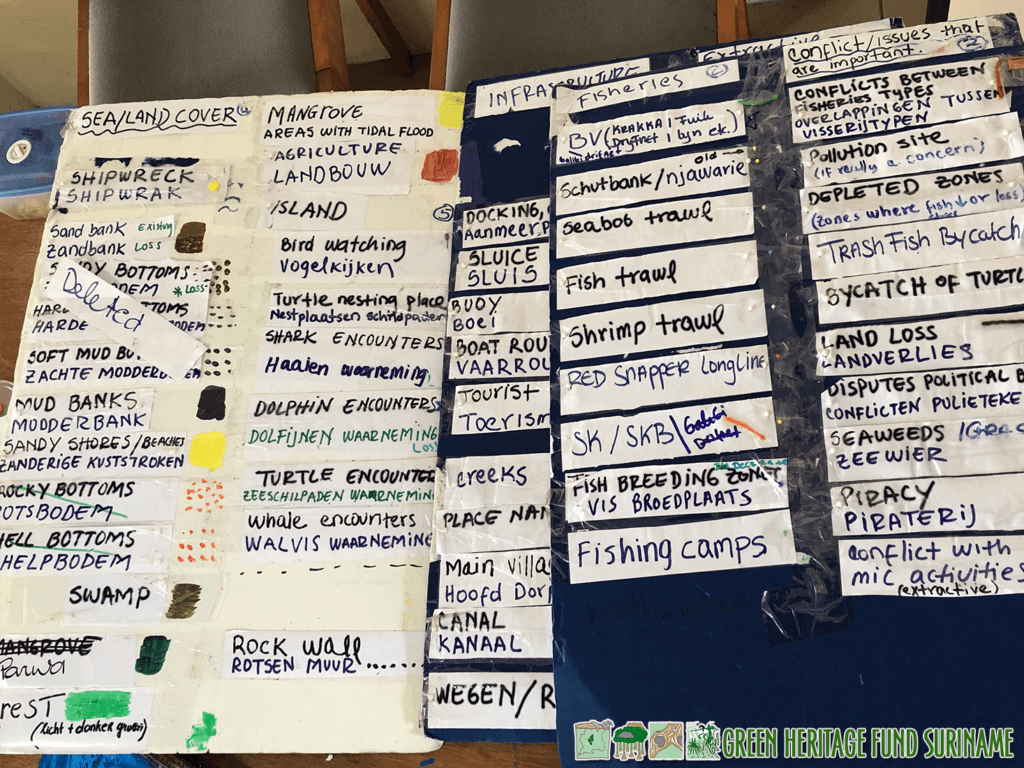 SEA/LAND COVER
SHIPWRECK
SHIPWRAK
Sand bank Existing
Zandbank Loss
BOTTOMS
*Loss
Deleted
HARDE
SOFT MUD
ZACHTE MODDER
MUD BANKS
MODDERBANK
SANDY SHORES/BEACHES
ZANDERIGE KUSTSTROKEN
ROCKY BOTTOMS
ROTSBODEM
HELL BOTTOMS
HELPBODEM
SWAMP
MANGROVE
Parwa
reST
(licht + donker groen)
MANGROVE
AREAS WITH TIDAL FLOOD
AGRICULTURE
LANDBOUW
ISLAND
Bird watching
Vogelkijken
Turtle nesting place
Nestplaatsen schildpadden
SHARK ENCOUNTERS
Haaien waarneming
DOLPHIN ENCOUNTERS
DOLFIJNEN WAARNEMING
Loss
TURTLE ENCOUNTER
ZEESCHILPADEN WAARNEMIN
Whale encounters
WALVIS WAARNEMING
ROCK Wall
ROTSEN MUUR
INFRASTRUCTURE
DOCKING,
Aanmeer,
SLUICE
SLUIS
BUOY
Boei
BOAT ROU
VAARROU
Tourist
Toerism
creeks
PLACE NAM
Main Villa
Hoofd Dor
CANAL
KANAAL
WEGEN/R
Fisheries 2
BV (KRAKKA / Fuik
Drifnet / Lyn ek.)
old
Schutbank/njawarie
Seabob trawl
Fish trawl
Shrimp trawl
RED SNAPPER Longline
SK/SKB
FISH BREEDING ZON
VIS BROEDPLAATS
Fishing camps
Conflict/issues that
are important. 2
CONFLICTS BETWEEN
FISHERIES TYPES
OVERLAPPINGEN TUSSEN
VISSERIJTYPEN
Pollution site
(if really a concern;
DEPLETED ZONES
(Zones where fish for loss)
TRASH Fish Bycatch
BYCATCH OF TURTL
LAND LOSS
LANDVERLIES
DISPUTES POLITICAL B
CONFLICTEN POLIETEKE
SEAWEEDS
ZEEWIER
PIRACY
PIRATERIJ
Conflict with
mic activities
(extractive)
GREEN HERITAGE FUND SURINAME